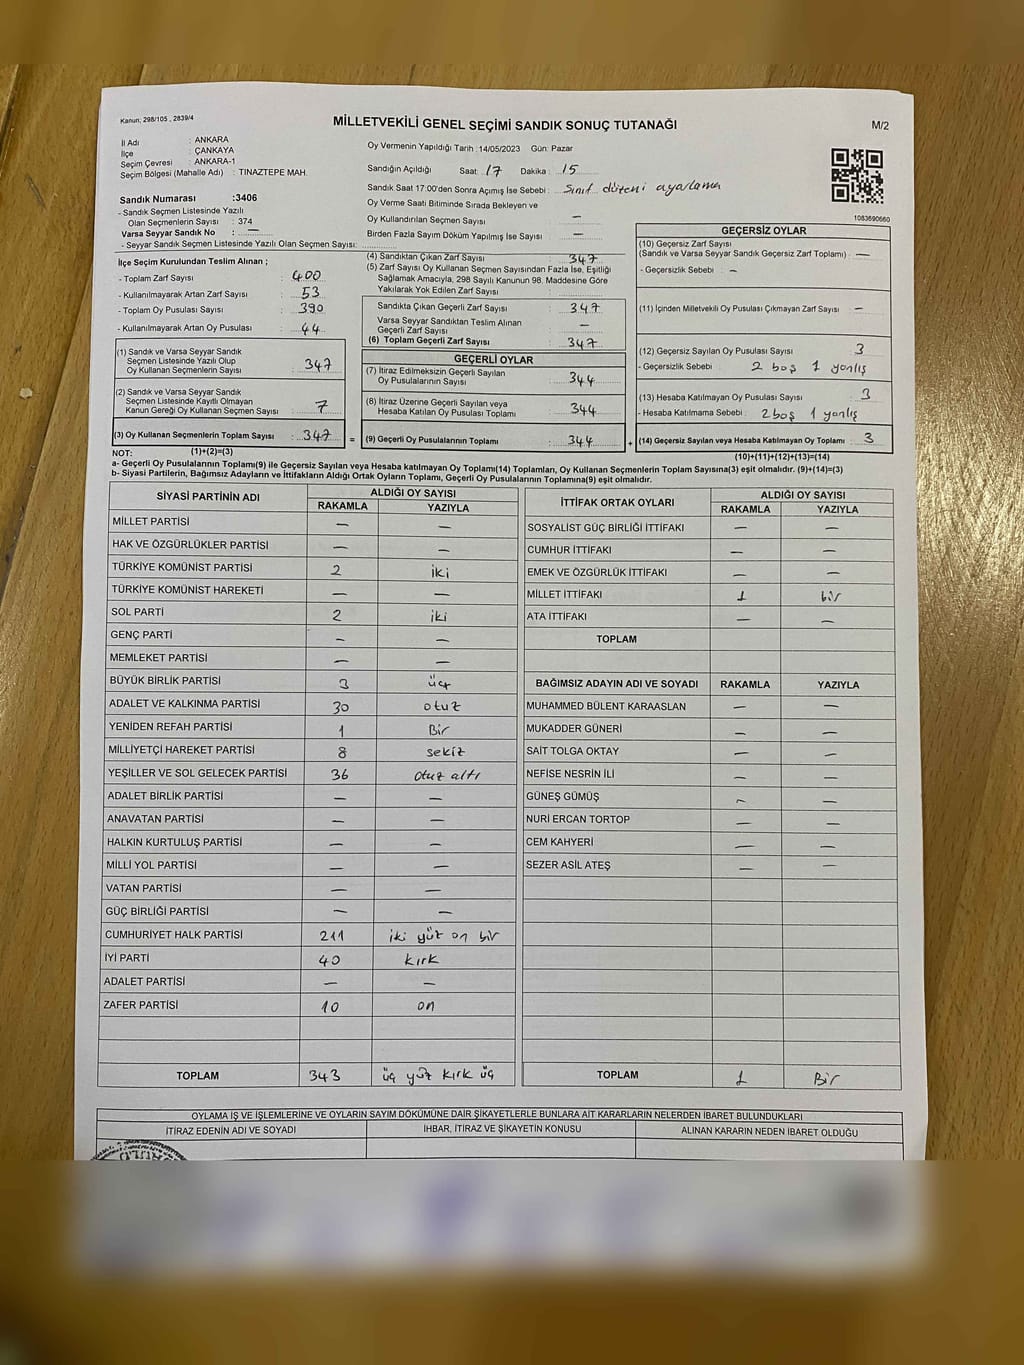 Kanun; 298/105 , 2839/4
MİLLETVEKİLİ GENEL SEÇİMİ SANDIK SONUÇ TUTANAĞI
M/2
İl Adı : ANKARA
İlçe : ÇANKAYA
Seçim Çevresi : ANKARA-1
Seçim Bölgesi (Mahalle Adı) : TINAZTEPE MAH.
Oy Vermenin Yapıldığı Tarih :14/05/2023 Gün: Pazar
Sandığın Açıldığı Saat: 17 Dakika : 15
Sandık Saat 17:00'den Sonra Açımış İse Sebebi : Sınıf düzeni ayarlama
Oy Verme Saati Bitiminde Sırada Bekleyen ve
Oy Kullandırılan Seçmen Sayısı : —
Birden Fazla Sayım Döküm Yapılmış İse Sayısı : —
1083690660
Sandık Numarası :3406
- Sandık Seçmen Listesinde Yazılı
Olan Seçmenlerin Sayısı : 374
Varsa Seyyar Sandık No : —
- Seyyar Sandık Seçmen Listesinde Yazılı Olan Seçmen Sayısı:
İlçe Seçim Kurulundan Teslim Alınan ;
- Toplam Zarf Sayısı : 400
- Kullanılmayarak Artan Zarf Sayısı : 53
- Toplam Oy Pusulası Sayısı : 390
- Kullanılmayarak Artan Oy Pusulası : 44
(1) Sandık ve Varsa Seyyar Sandık
Seçmen Listesinde Yazılı Olup
Oy Kullanan Seçmenlerin Sayısı : 347
(2) Sandık ve Varsa Seyyar Sandık
Seçmen Listesinde Kayıtlı Olmayan
Kanun Gereği Oy Kullanan Seçmen Sayısı : 7
(3) Oy Kullanan Seçmenlerin Toplam Sayısı : 347 =
(1)+(2)=(3)
(4) Sandıktan Çıkan Zarf Sayısı : 347
(5) Zarf Sayısı Oy Kullanan Seçmen Sayısından Fazla İse, Eşitliği
Sağlamak Amacıyla, 298 Sayılı Kanunun 98. Maddesine Göre
Yakılarak Yok Edilen Zarf Sayısı :
Sandıkta Çıkan Geçerli Zarf Sayısı : 347
Varsa Seyyar Sandıktan Teslim Alınan
Geçerli Zarf Sayısı : —
(6) Toplam Geçerli Zarf Sayısı : 347
GEÇERLİ OYLAR
(7) İtiraz Edilmeksizin Geçerli Sayılan
Oy Pusulalarının Sayısı : 344
(8) İtiraz Üzerine Geçerli Sayılan veya
Hesaba Katılan Oy Pusulası Toplamı : 344
(9) Geçerli Oy Pusulalarının Toplamı : 344 +
GEÇERSİZ OYLAR
(10) Geçersiz Zarf Sayısı
(Sandık ve Varsa Seyyar Sandık Geçersiz Zarf Toplamı) : —
- Geçersizlik Sebebi : —
(11) İçinden Milletvekili Oy Pusulası Çıkmayan Zarf Sayısı : —
(12) Geçersiz Sayılan Oy Pusulası Sayısı : 3
- Geçersizlik Sebebi : 2 boş 1 yanlış
(13) Hesaba Katılmayan Oy Pusulası Sayısı : 3
- Hesaba Katılmama Sebebi : 2 boş 1 yanlış
(14) Geçersiz Sayılan veya Hesaba Katılmayan Oy Toplamı : 3
(10)+(11)+(12)+(13)=(14)
NOT:
a- Geçerli Oy Pusulalarının Toplamı(9) ile Geçersiz Sayılan veya Hesaba katılmayan Oy Toplamı(14) Toplamları, Oy Kullanan Seçmenlerin Toplam Sayısına(3) eşit olmalıdır. (9)+(14)=(3)
b- Siyasi Partilerin, Bağımsız Adayların ve İttifakların Aldığı Ortak Oyların Toplamı, Geçerli Oy Pusulalarının Toplamına(9) eşit olmalıdır.
SİYASİ PARTİNİN ADI ALDIĞI OY SAYISI
RAKAMLA YAZIYLA
MİLLET PARTİSİ — —
HAK VE ÖZGÜRLÜKLER PARTİSİ — —
TÜRKİYE KOMÜNİST PARTİSİ 2 iki
TÜRKİYE KOMÜNİST HAREKETİ — —
SOL PARTİ 2 iki
GENÇ PARTİ — —
MEMLEKET PARTİSİ — —
BÜYÜK BİRLİK PARTİSİ 3 üç
ADALET VE KALKINMA PARTİSİ 30 otuz
YENİDEN REFAH PARTİSİ 1 Bir
MİLLİYETÇİ HAREKET PARTİSİ 8 sekiz
YEŞİLLER VE SOL GELECEK PARTİSİ 36 otuz altı
ADALET BİRLİK PARTİSİ — —
ANAVATAN PARTİSİ — —
HALKIN KURTULUŞ PARTİSİ — —
MİLLİ YOL PARTİSİ — —
VATAN PARTİSİ — —
GÜÇ BİRLİĞİ PARTİSİ — —
CUMHURİYET HALK PARTİSİ 211 iki yüz on bir
İYİ PARTİ 40 kırk
ADALET PARTİSİ — —
ZAFER PARTİSİ 10 on
TOPLAM 343 üç yüz kırk üç
İTTİFAK ORTAK OYLARI ALDIĞI OY SAYISI
RAKAMLA YAZIYLA
SOSYALİST GÜÇ BİRLİĞİ İTTİFAKI — —
CUMHUR İTTİFAKI — —
EMEK VE ÖZGÜRLÜK İTTİFAKI — —
MİLLET İTTİFAKI 1 bir
ATA İTTİFAKI — —
TOPLAM
BAĞIMSIZ ADAYIN ADI VE SOYADI RAKAMLA YAZIYLA
MUHAMMED BÜLENT KARAASLAN — —
MUKADDER GÜNERİ — —
SAİT TOLGA OKTAY — —
NEFİSE NESRİN İLİ — —
GÜNEŞ GÜMÜŞ — —
NURİ ERCAN TORTOP — —
CEM KAHYERİ — —
SEZER ASİL ATEŞ — —
TOPLAM 1 Bir
OYLAMA İŞ VE İŞLEMLERİNE VE OYLARIN SAYIM DÖKÜMÜNE DAİR ŞİKAYETLERLE BUNLARA AİT KARARLARIN NELERDEN İBARET BULUNDUKLARI
İTİRAZ EDENİN ADI VE SOYADI İHBAR, İTİRAZ VE ŞİKAYETİN KONUSU ALINAN KARARIN NEDEN İBARET OLDUĞU